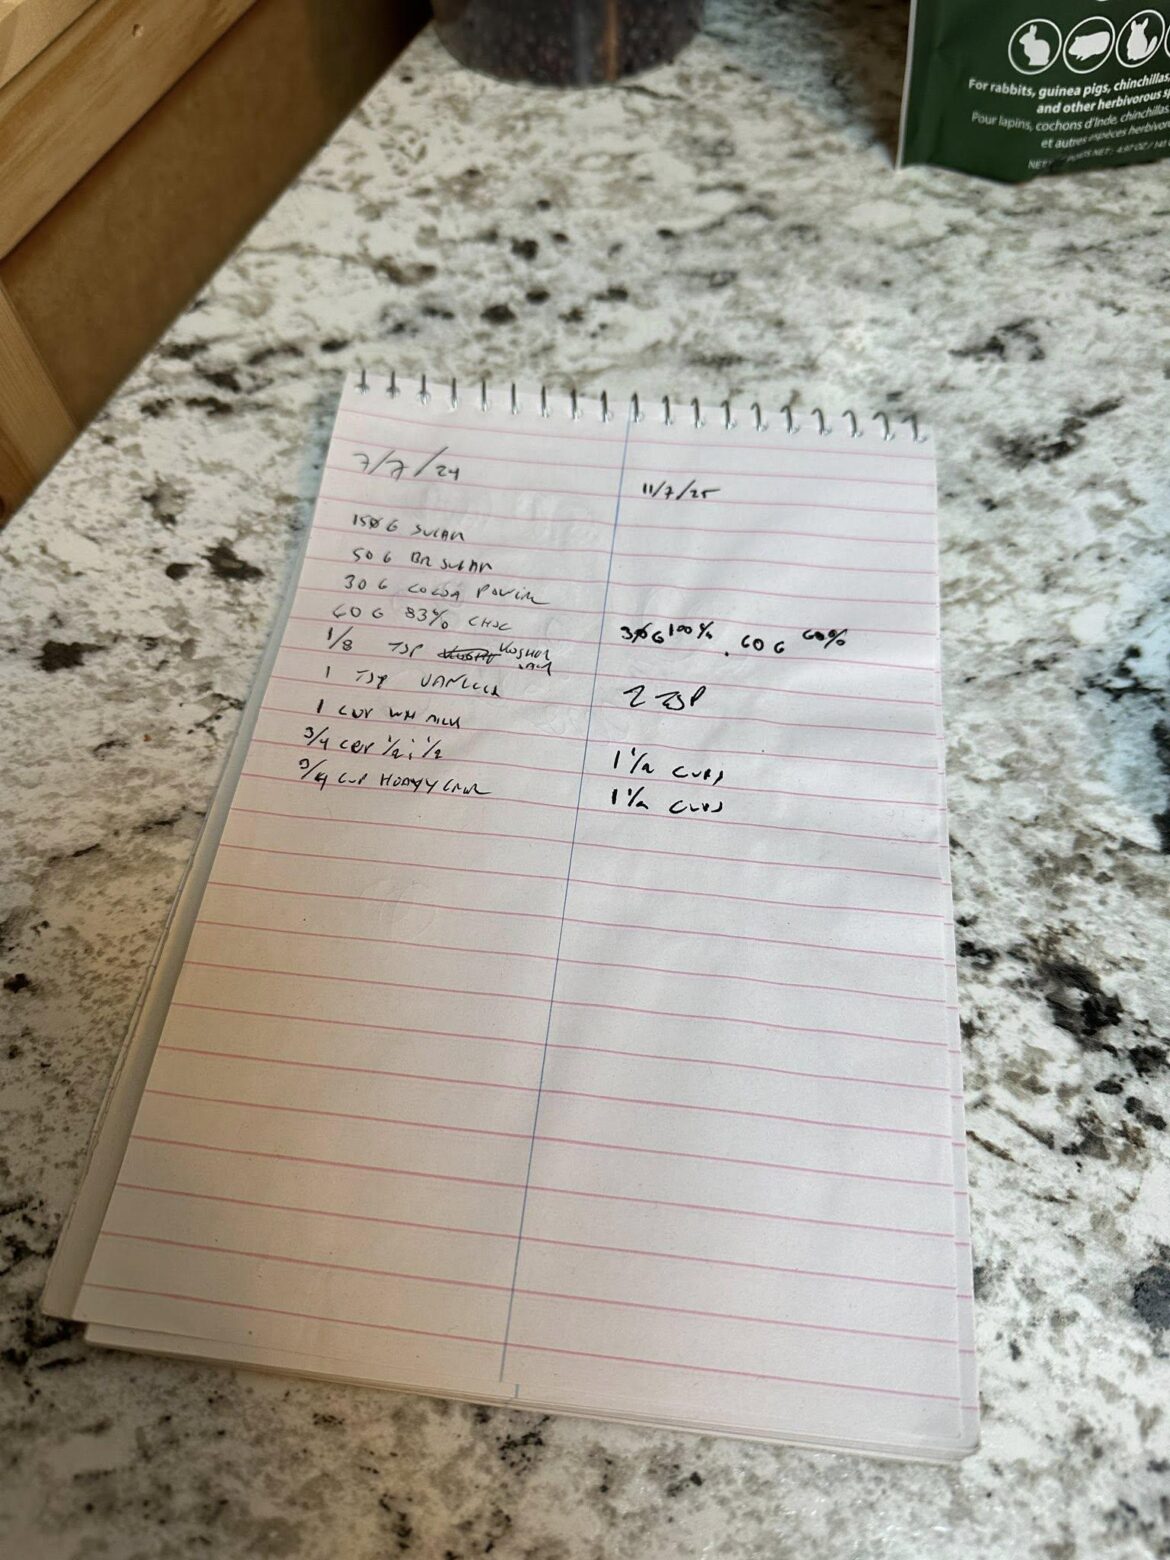 For rabbits, guinea pigs, chinchillas,
and other herbivorous
Pour lapins, cochons d'Inde, chinchillas
et autres espèces herbivo
7/7/24
11/7/25
150 G SUGAR
50 G BR SUGAR
30 G COCOA POWDER
60 G 83% CHOC
30G 100% . 60 G 60%
1/8 TSP KOSHER
SALT
1 TSP VANILLA
2 TSP
1 CUP WH MILK
3/4 CUP 1/2 ; 1/2
1 1/2 CUPS
3/4 CUP HEAVY CREAM
1 1/2 CUPS